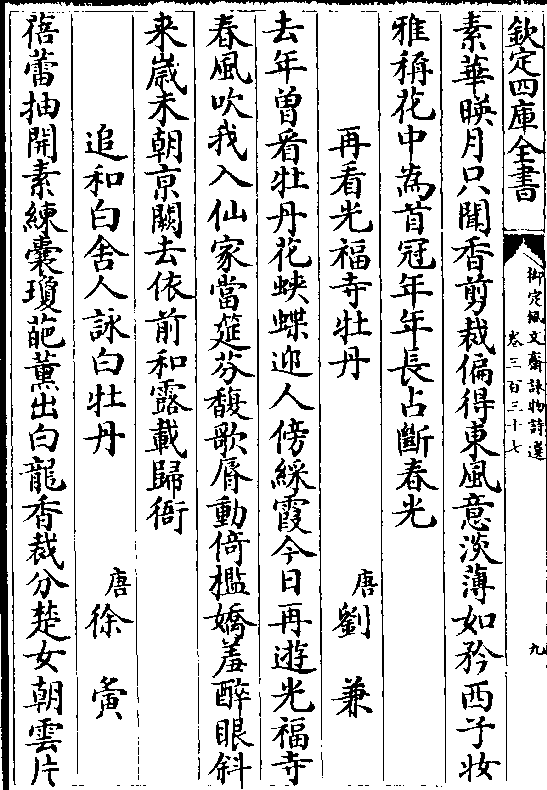 欽定四庫全書
御定佩文齋詠物詩選
卷三百三十七
九
素華暎月只聞香剪裁偏得東風意淡薄如矜西子妝
雅稱花中為首冠年年長占斷春光
再看光福寺牡丹
唐劉兼
去年曾看牡丹花蛺蝶迎人傍綵霞今日再遊光福寺
春風吹我入仙家當筵芬馥歌脣動倚檻嬌羞醉眼斜
来嵗未朝京闕去依前和露載歸衙
追和白舍人詠白牡丹
唐徐夤
蓓蕾抽開素練囊瓊葩薰出白龍香裁分楚女朝雲片